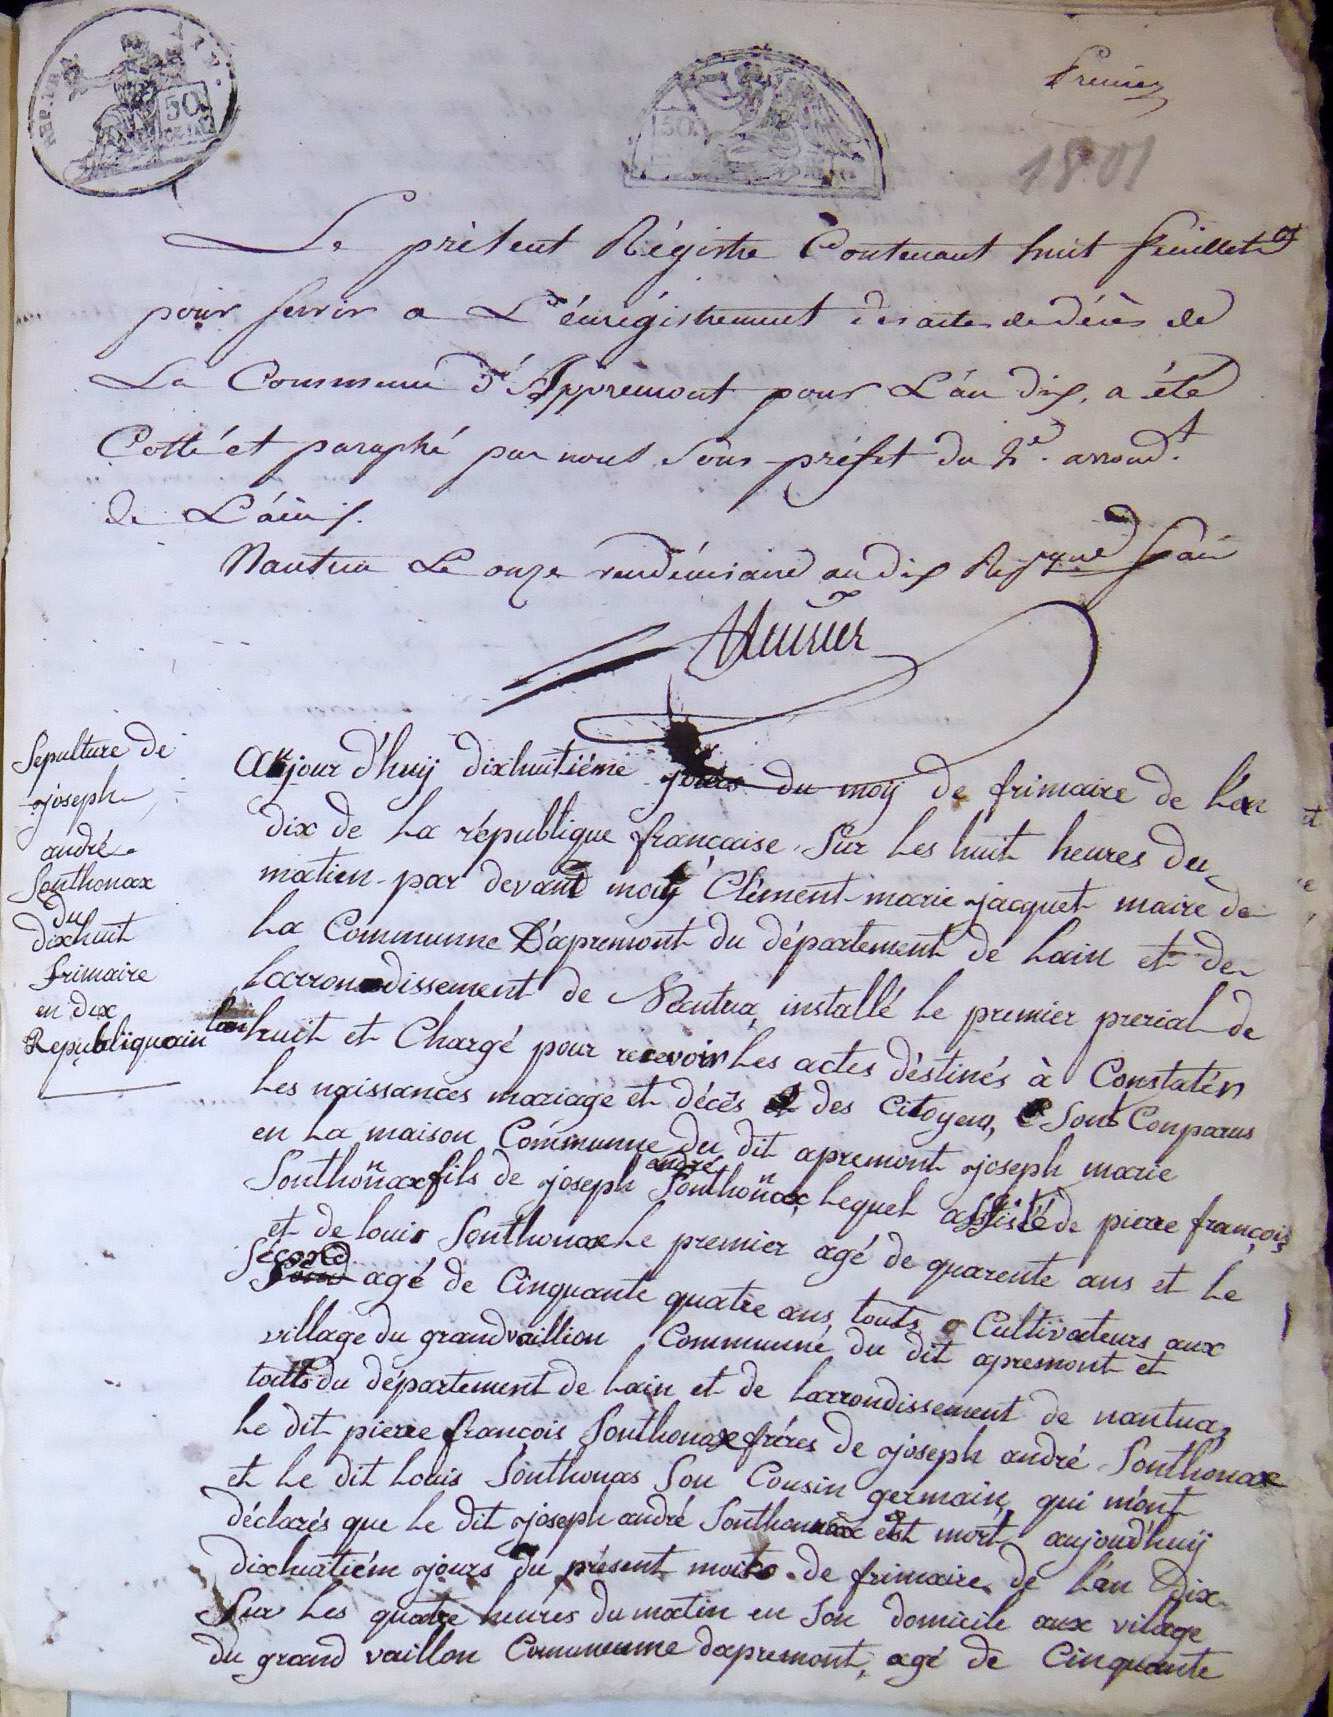 REP. FRA.
50
CENT.
50
Premier
1801
Le présent Régistre Contenant huit feuillets
pour servir a L'énrégistrement des actes de décès de
La Commune d'Appremont pour L'an dix, a été
Cotté et paraphé par nous Sous-préfet du 2e. arrondt.
de L'ain.
Nantua Le onze vendémiaire an dix
Sepulture de
joseph
andré
Sonthonax
du
dixhuit
frimaire
en dix
Republiquain
aujour d'huÿ dixhuitiéme jours du moÿ de frimaire de l'an
dix de la république française, Sur les huit heures du
matien par devant moÿ Clément marie jacquet maire de
la Communne D'apremont du département de lain et de
larrondissement de Nantua, installé le premier prerial de
lan huit et Chargé pour recevoir les actes déstinés à Constatér
les naissances mariage et décés des Citoyens, Sont Conparus
en la maison Communne du dit apremont joseph marie
Sonthonax fils de joseph andré Sonthonax, lequel assisté de pierre françois
et de louis Sonthonax le premier agé de quarente ans et le
sécond agé de Cinquante quatre ans, touts Cultivateurs aux
village du grand vaillion Communne du dit apremont et
touts du département de lain et de larrondissement de nantua,
le dit pierre françois Sonthonax fréres de joseph andré Sonthonax
et le dit louis Sonthonas Son Cousin germain, qui m'ont
déclarés que le dit joseph andré Sonthonax est mort aujoud'huÿ
dixhuitiém jours du présent mois de frimaire de l'an dix
Sur les quatre heures du matin en Son domicile aux vilage
du grand vaillon Communne dapremont, agé de Cinquante